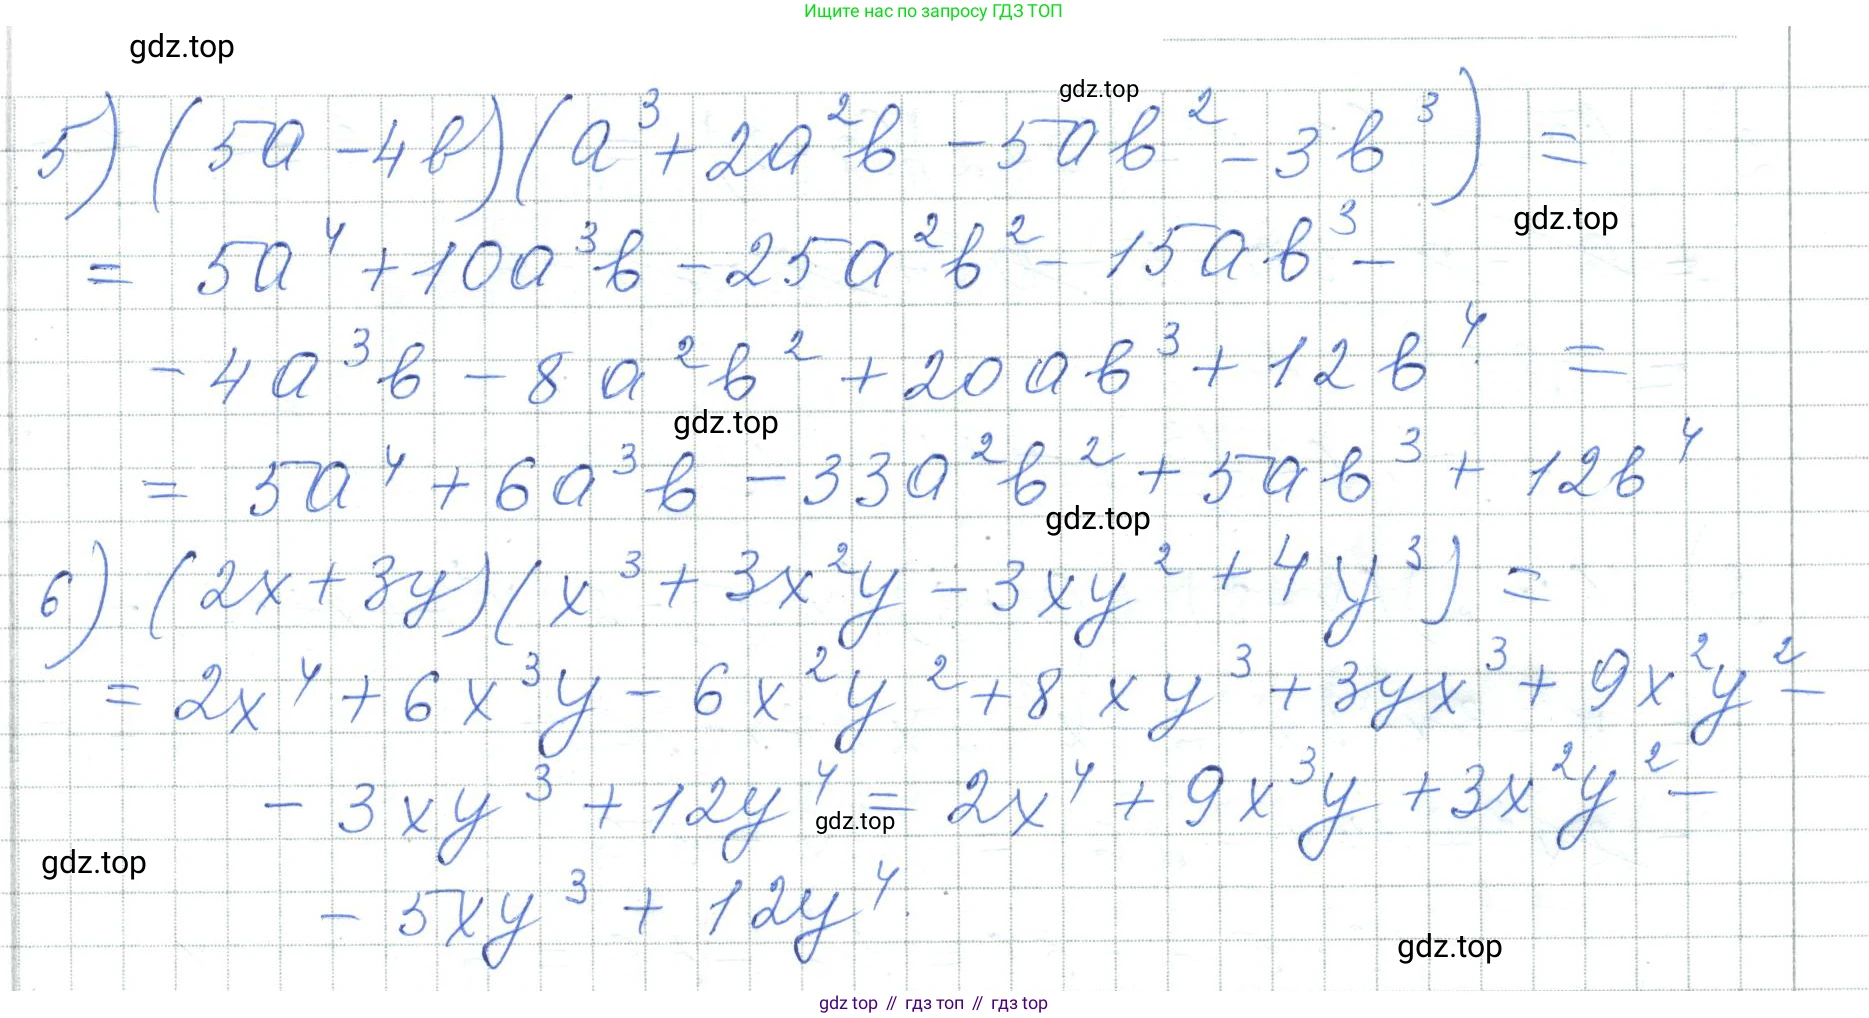 Ищите нас по запросу ГДЗ ТОП
gdz.top
gdz.top
5) (5a - 4b)(a³ + 2a²b - 5ab² - 3b³) =
gdz.top
= 5a⁴ + 10a³b - 25a²b² - 15ab³ -
- 4a³b - 8a²b² + 20ab³ + 12b⁴ =
gdz.top
= 5a⁴ + 6a³b - 33a²b² + 5ab³ + 12b⁴
gdz.top
6) (2x + 3y)(x³ + 3x²y - 3xy² + 4y³) =
= 2x⁴ + 6x³y - 6x²y² + 8xy³ + 3yx³ + 9x²y² -
- 3xy³ + 12y⁴ = 2x⁴ + 9x³y + 3x²y² -
gdz.top
gdz.top
- 5xy³ + 12y⁴
gdz.top
gdz top // гдз топ // гдз top